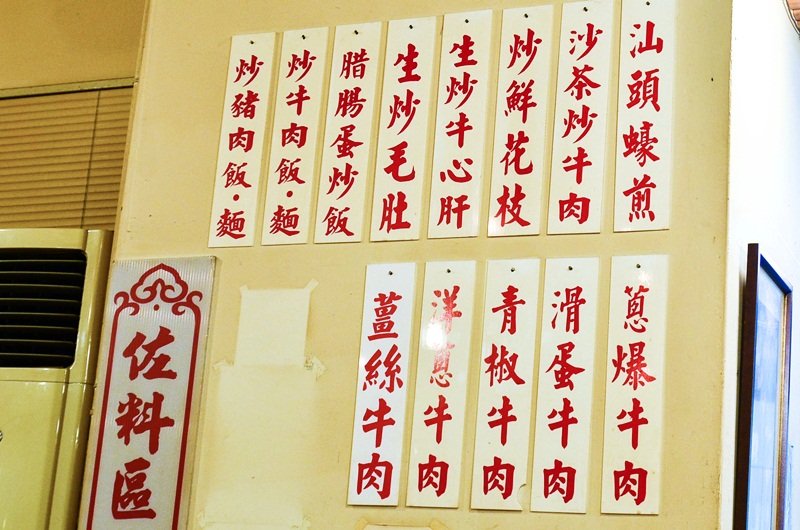 汕頭蠔煎
沙茶炒牛肉
炒鮮花枝
生炒牛心肝
生炒毛肚
腊腸蛋炒飯
炒牛肉飯·麵
炒豬肉飯·麵
蔥爆牛肉
滑蛋牛肉
青椒牛肉
洋蔥牛肉
薑絲牛肉
佐料區